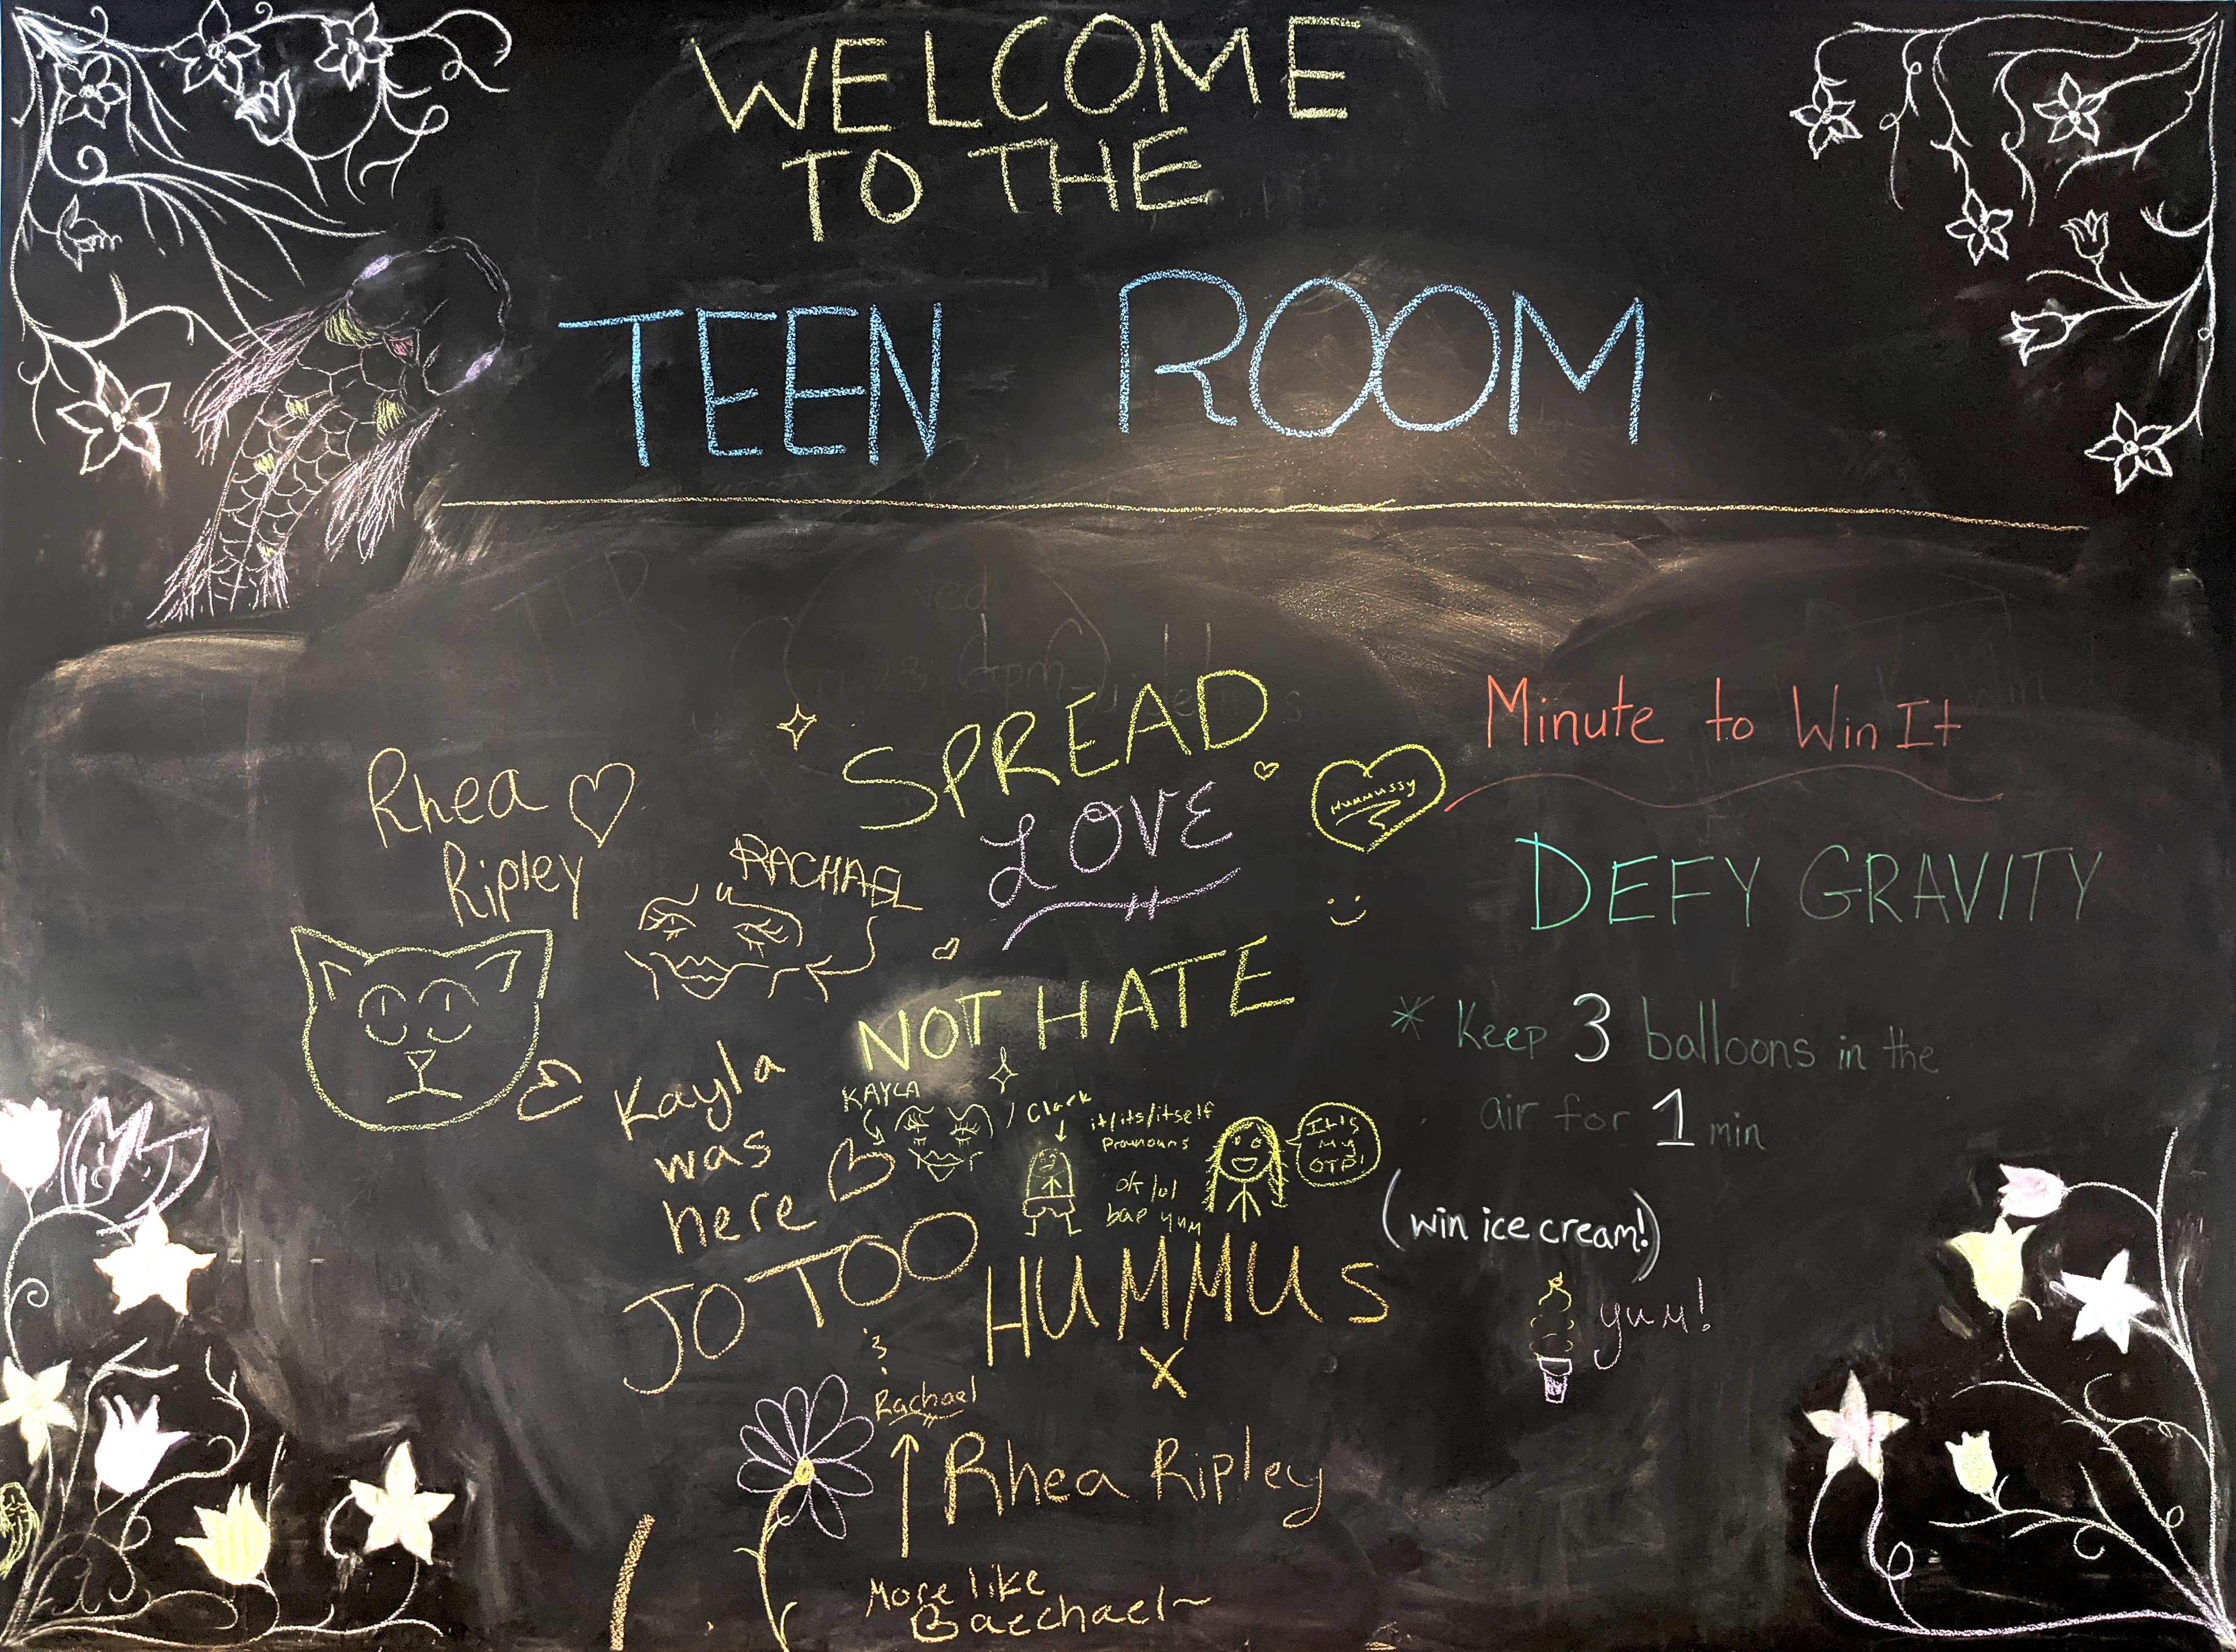 WELCOME
TO THE
TEEN ROOM
Wed
23 6pm
SPREAD
LOVE
NOT HATE
Hummussy
Minute to Win It
DEFY GRAVITY
* Keep 3 balloons in the
air for 1 min
(win ice cream!)
yum!
Rhea
Ripley
RACHAEL
Kayla
was
here
KAYLA
Clark
it/its/itself
pronouns
ok lol
bae yum
It's
my
OTP!
JO TOO
&
Rachael
HUMMUS
X
Rhea Ripley
More like
Baechael~